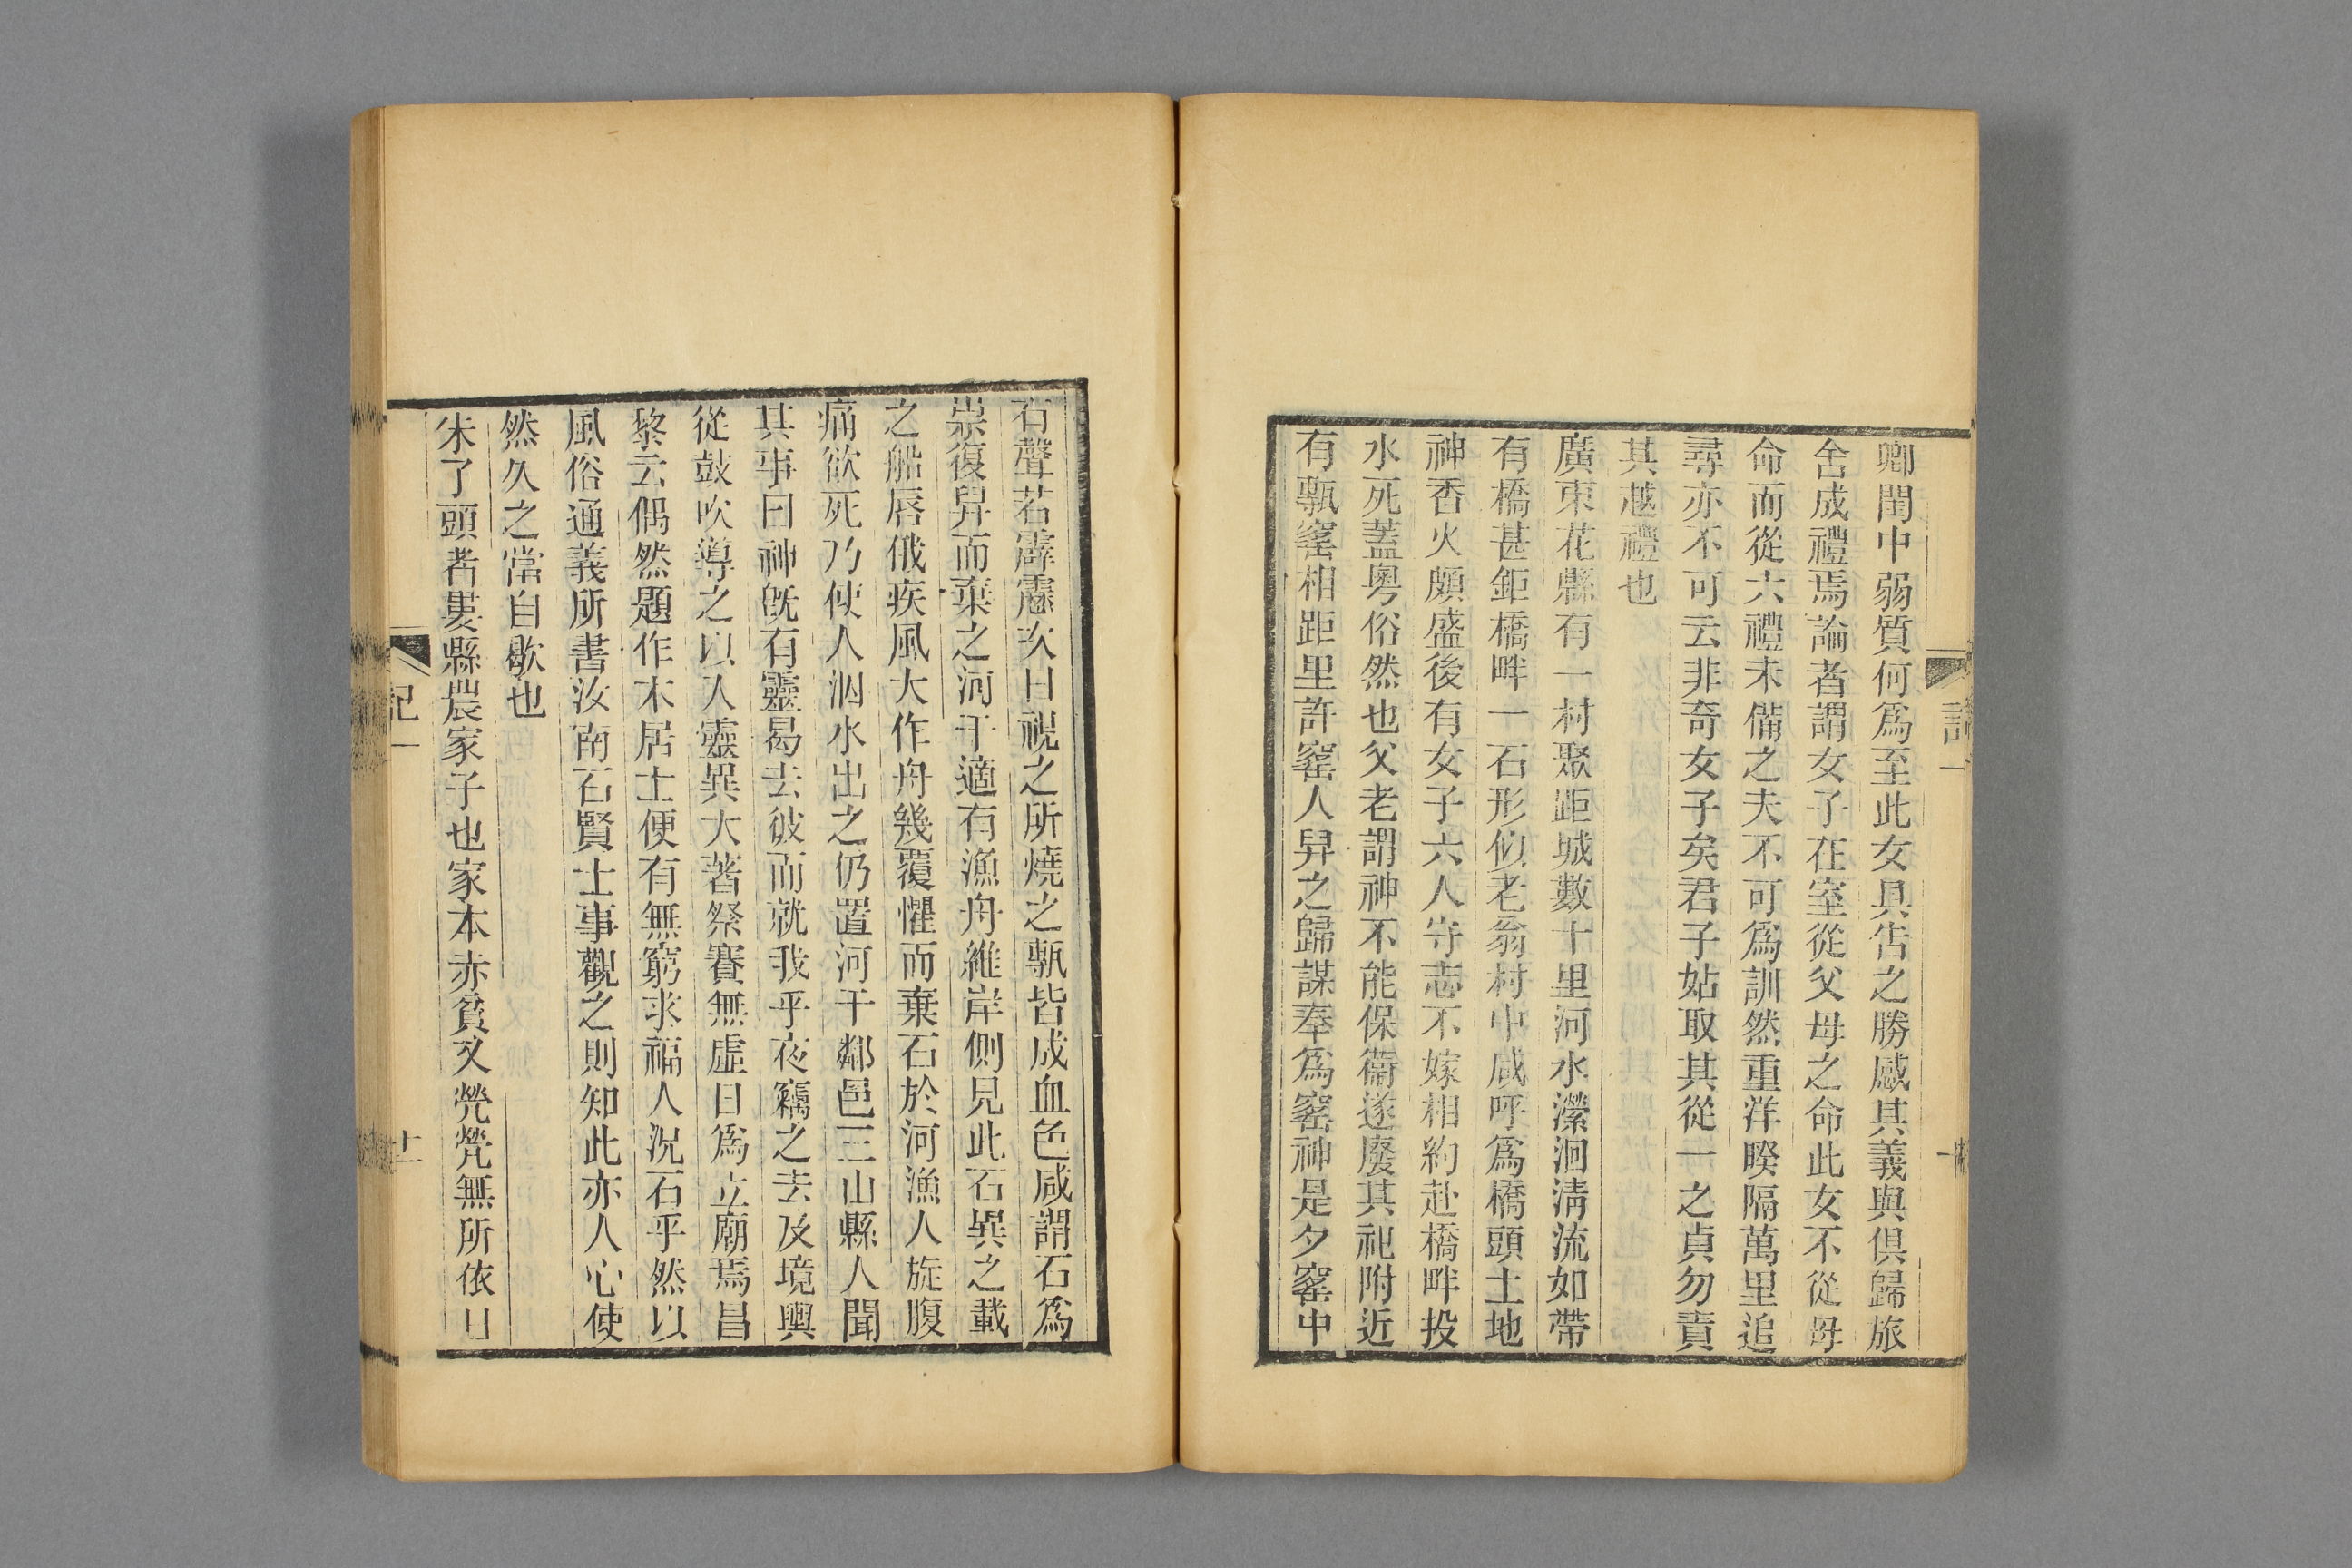 卿閨中弱質何爲至此女具告之勝感其義與俱歸旅
舍成禮焉論者謂女子在室從父母之命此女不從母
命而從六禮未備之夫不可爲訓然重洋睽隔萬里追
尋亦不可云非奇女子矣君子姑取其從一之貞勿責
其越禮也
廣東花縣有一村聚距城數十里河水瀠洄淸流如帶
有橋甚鉅橋畔一石形似老翁村中咸呼爲橋頭土地
神香火頗盛後有女子六人守志不嫁相約赴橋畔投
水死蓋粤俗然也父老謂神不能保衞遂廢其祀附近
有甎窰相距里許窰人舁之歸謀奉爲窰神是夕窰中
石聲若霹靂次日視之所燒之甎皆成血色咸謂石爲
祟復舁而棄之河干適有漁舟維岸側見此石異之載
之船唇俄疾風大作舟幾覆懼而棄石於河漁人旋腹
痛欲死乃使人泅水出之仍置河干鄰邑三山縣人聞
其事曰神旣有靈曷去彼而就我乎夜竊之去及境輿
從鼓吹導之以入靈異大著祭賽無虛日爲立廟焉昌
黎云偶然題作木居士便有無窮求福人況石乎然以
風俗通義所書汝南石賢士事觀之則知此亦人心使
然久之當自歇也
朱了頭者婁縣農家子也家本赤貧又煢煢無所依日
記一
十一